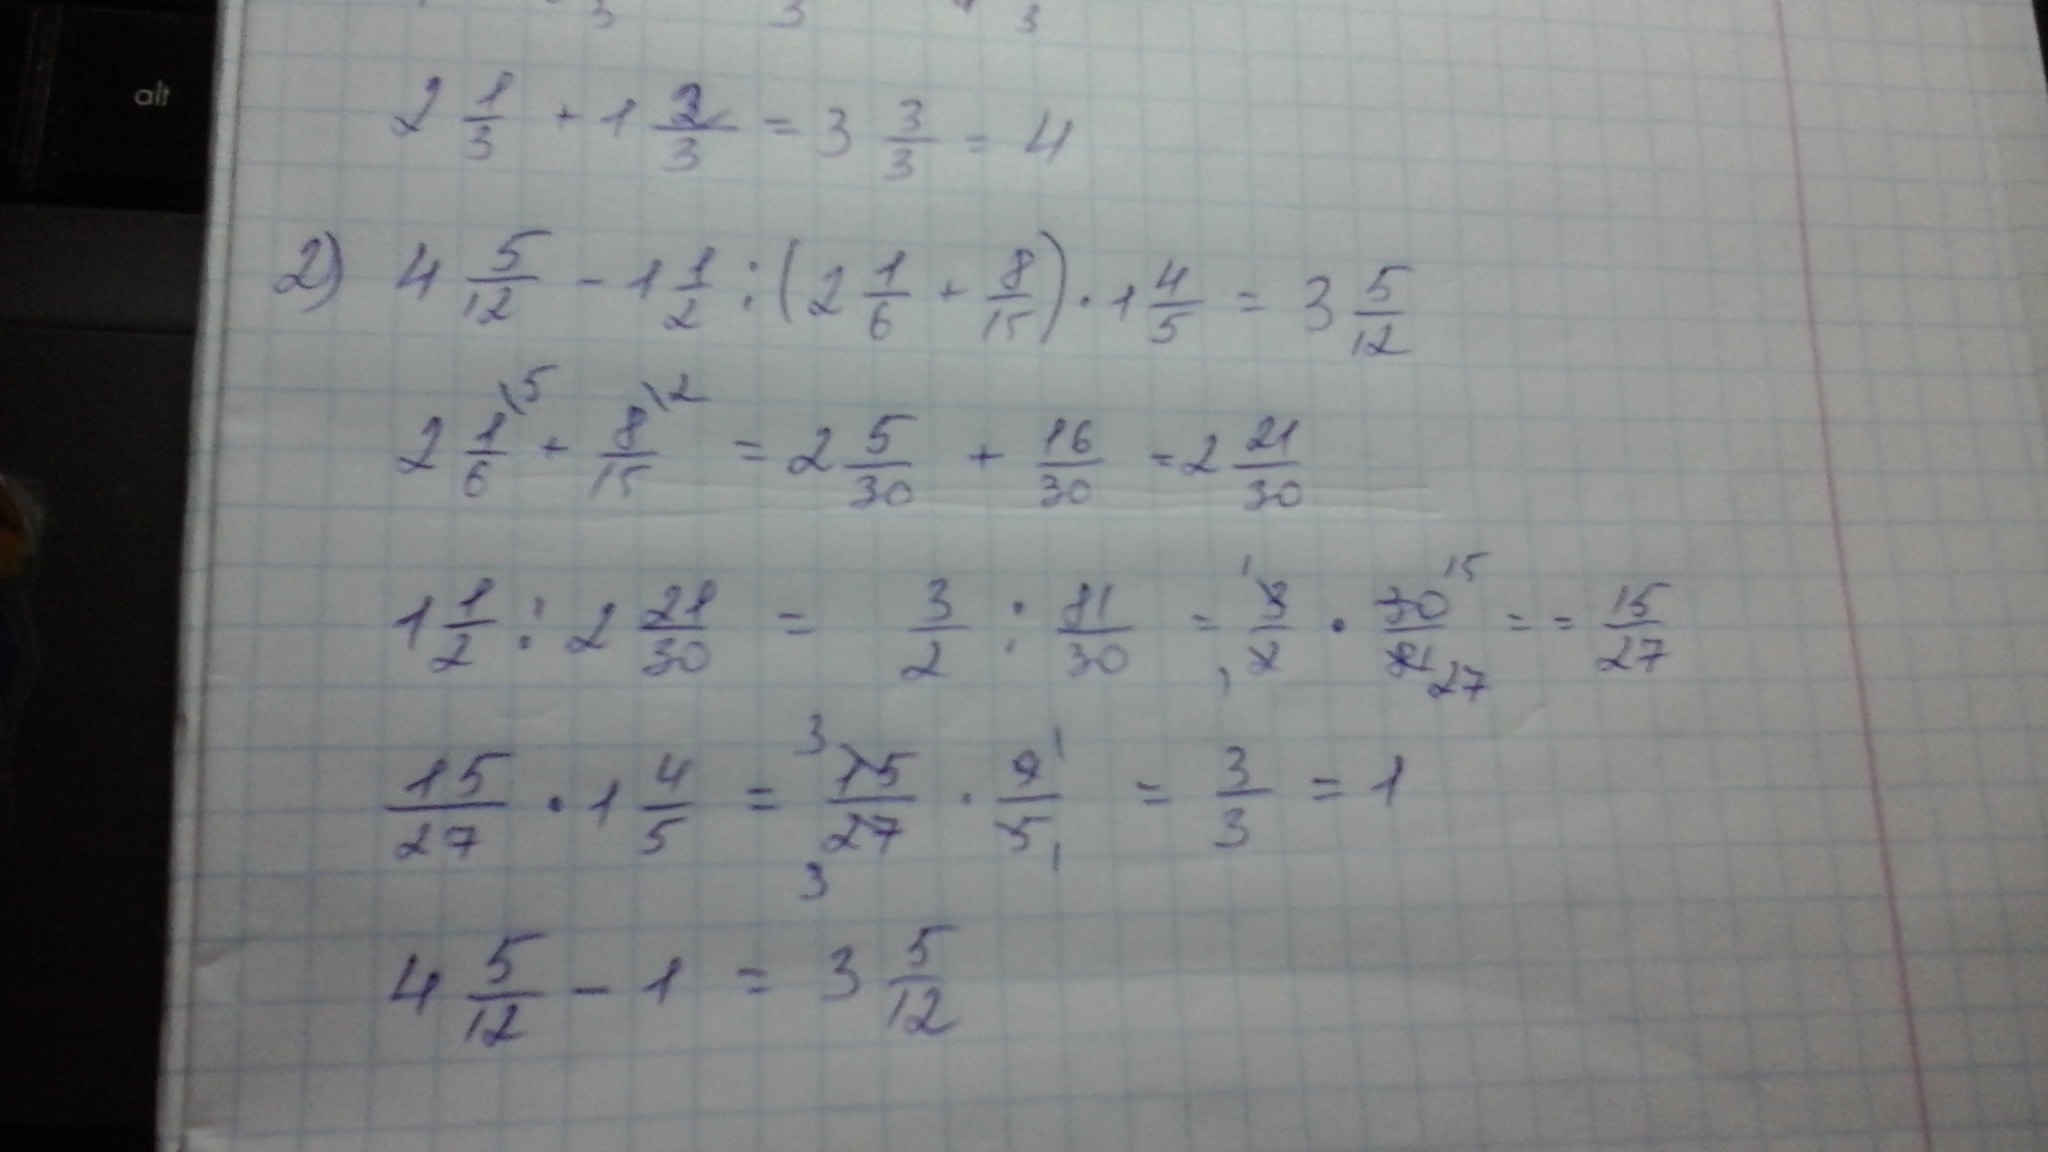 alt
3 3 3
2 1/3 + 1 2/3 = 3 3/3 = 4
2) 4 5/12 - 1 1/2 : (2 1/6 + 8/15) · 1 4/5 = 3 5/12
2 1/6 \5 + 8/15 \2 = 2 5/30 + 16/30 = 2 21/30
1 1/2 : 2 21/30 = 3/2 : 81/30 = 1 3/2 1 · 30/81 15 27 = = 15/27
15/27 · 1 4/5 = 3 15/27 3 · 9/5 1 1 = 3/3 = 1
4 5/12 - 1 = 3 5/12